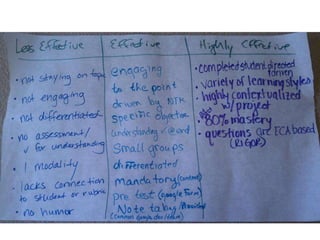 Less Effective
• not staying on topic
• not engaging
• not differentiated
• no assessment/
✓ for understanding
• 1 modality
• lacks connection
to student or rubric
• no humor
Effective
engaging
to the point
driven by NTK
specific objective
understanding @ end
Small groups
differentiated
mandatory (content)
pre test (google form)
Note taking
(common google doc/team)
Highly Effective
• completed student directed
driven
• variety of learning styles
• highly contextualized
w/project
• 80% mastery
• questions are ECA based
(RIGOR)